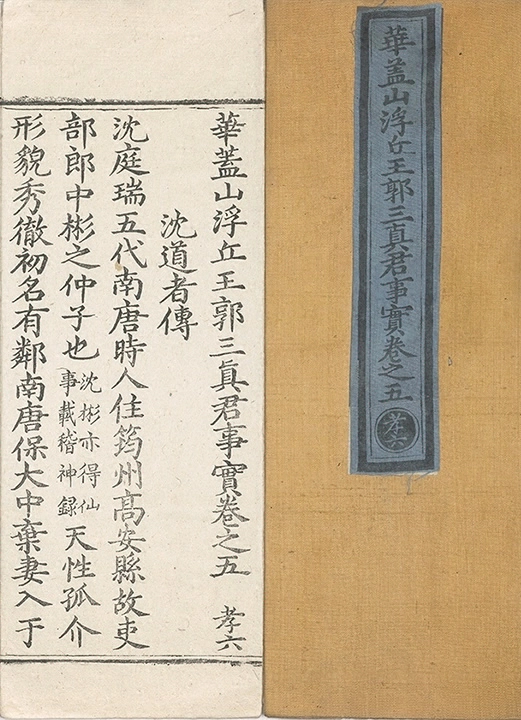 華蓋山浮丘王郭三真君事實卷之五
孝六
華蓋山浮丘王郭三眞君事實卷之五　孝六
沈道者傳
沈庭瑞五代南唐時人住筠州高安縣故吏
部郎中彬之仲子也
沈彬亦得仙
事載稽神録
天性孤介
形貌秀徹初名有鄰南唐保大中棄妻入于